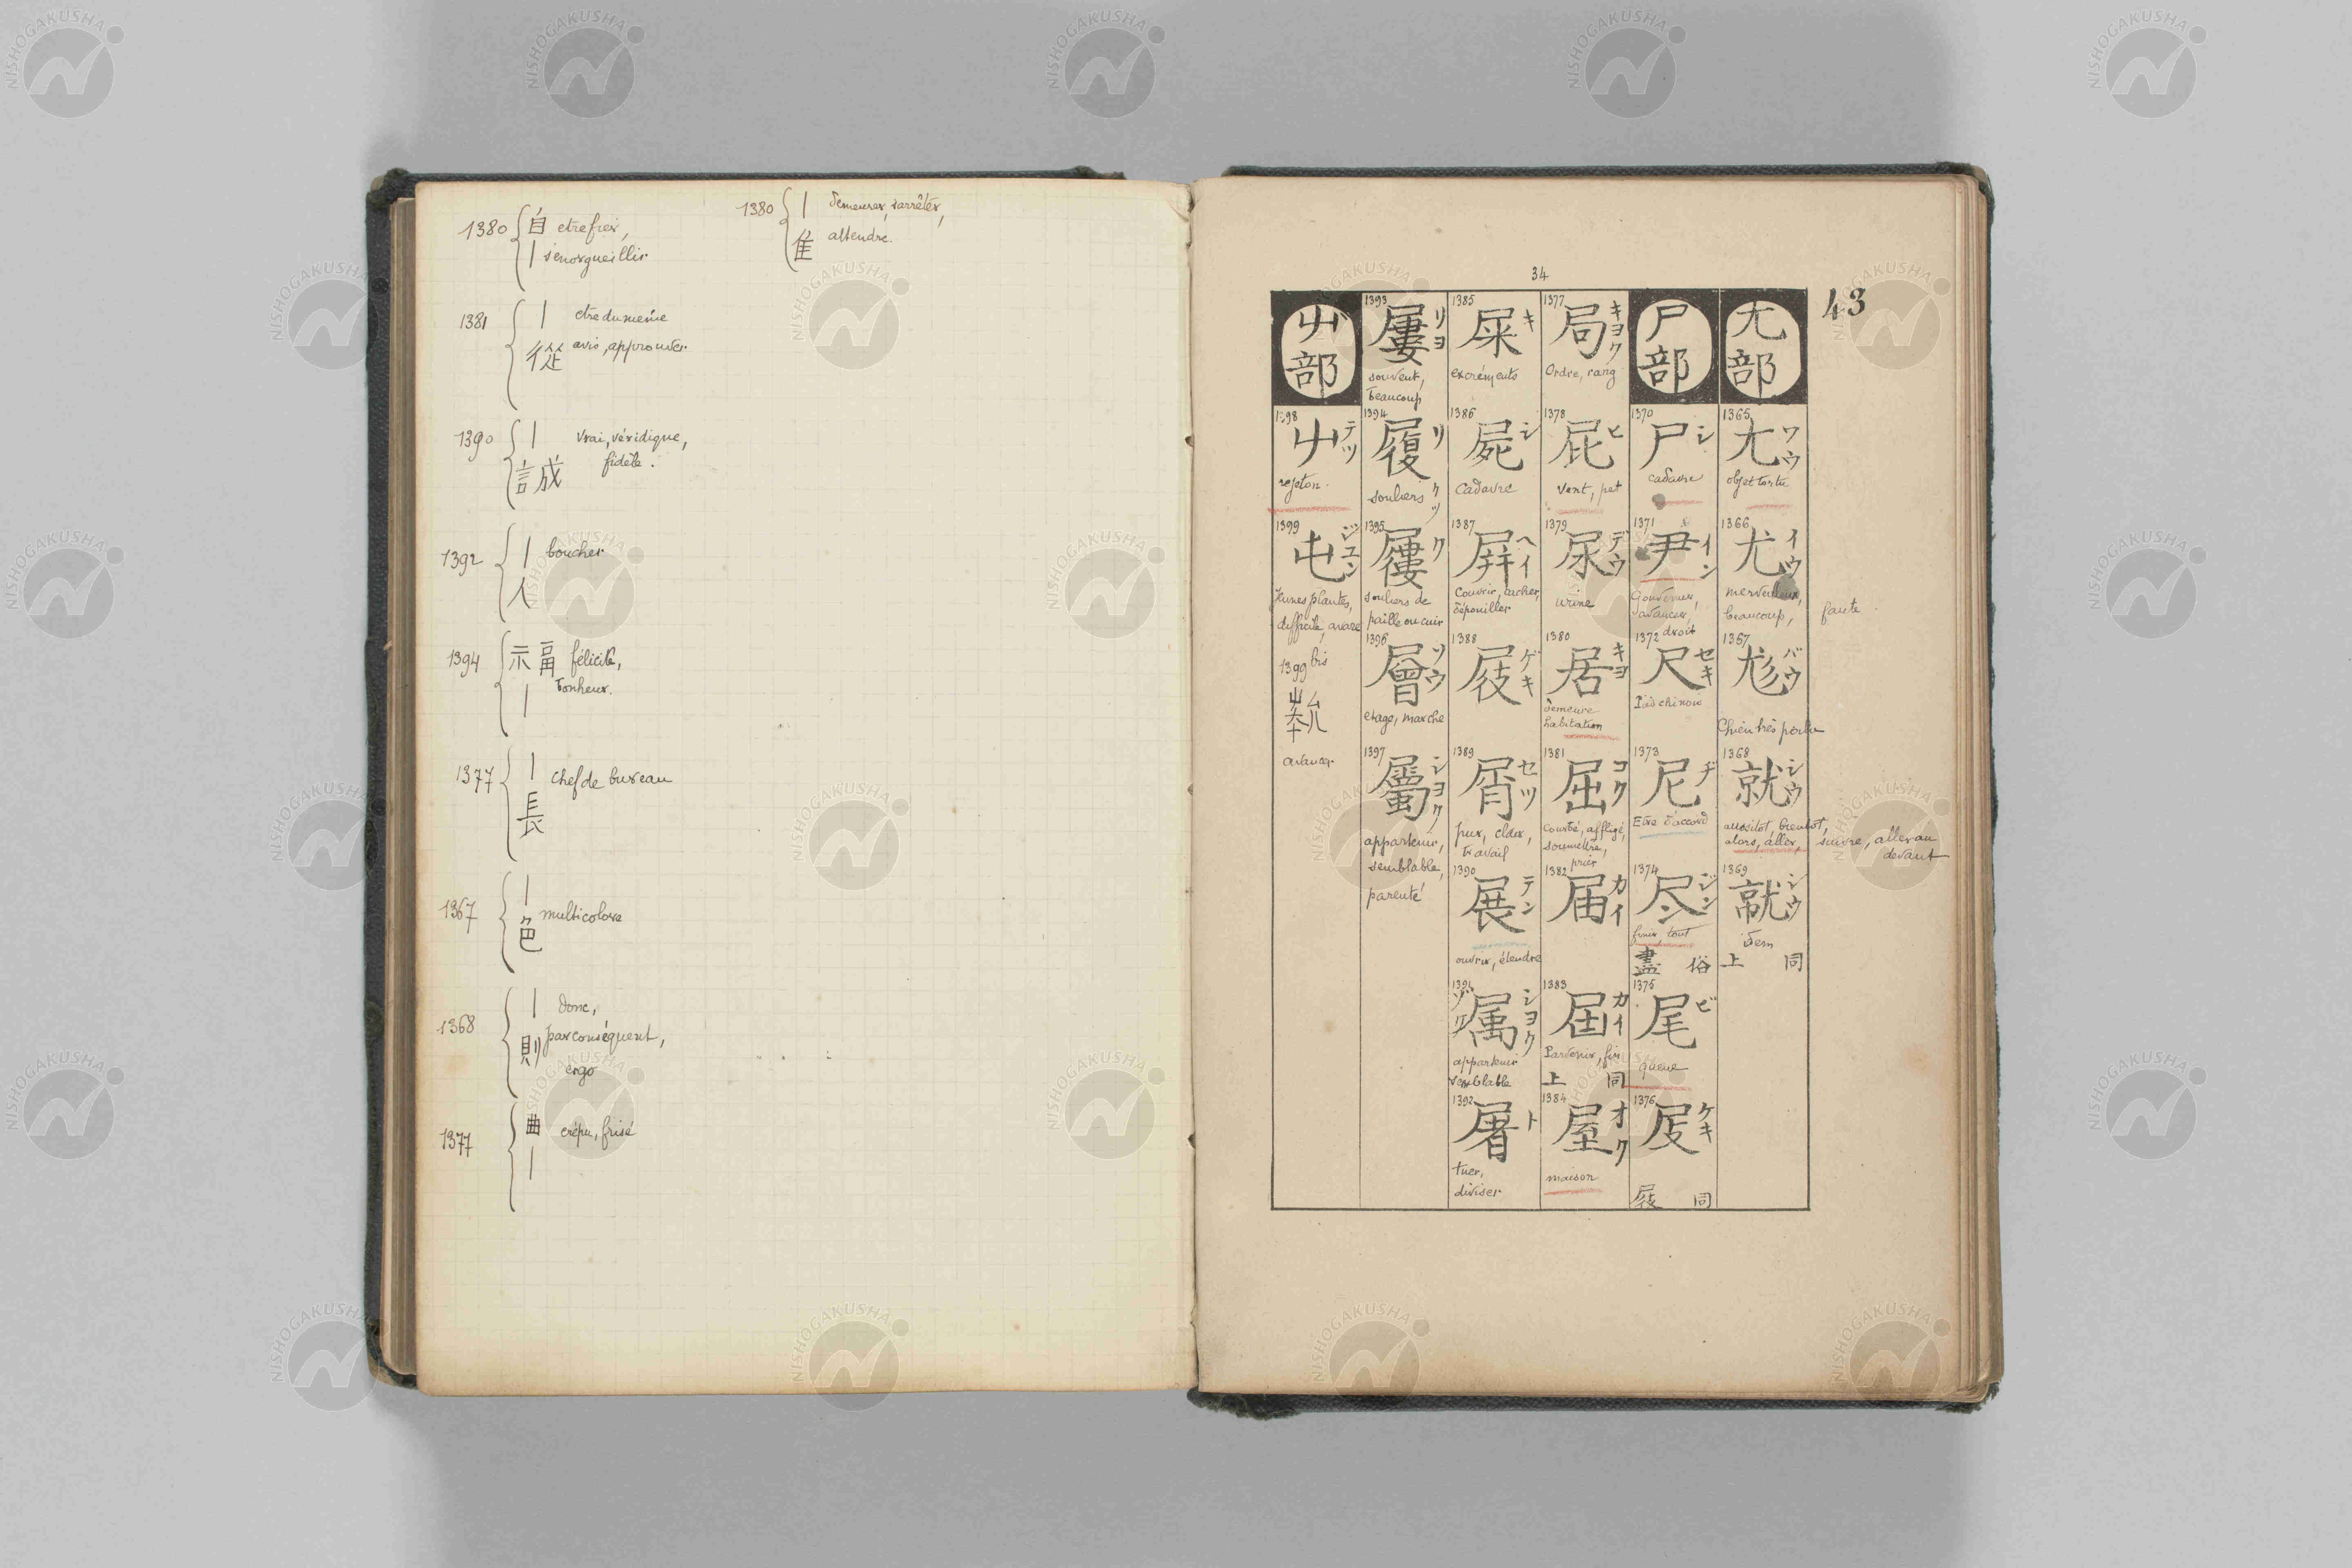 1380 自 etre fier,
| s'enorgueillir
1380 | demeurer, s'arrêter,
隹 attendre.
1381 | etre du meme
從 avis, approuver
1390 | Vrai, véridique,
誠 fidèle.
1392 | boucher
人
1394 示畐 félicité,
| bonheur.
1377 | chef de bureau
長
1367 | multicolore
色
1368 | donc,
則 par conséquent,
ergo
1377 曲 crépu, frisé
|
34
43
尢部
1365 尢 ワウ
objet tortu
1366 尤 イウ
merveilleux,
beaucoup, faute
1367 尨 バウ
Chien très poilu
1368 就 シウ
aussitot, bientot,
alors, aller, suivre, aller au
devant
1369 シウ
idem
上同
尸部
1370 尸 シ
cadavre
1371 尹 イン
Gouverner,
s'avancer,
droit
1372 尺 セキ
Pied chinois
1373 尼 ヂ
Etre d'accord
1374 尽 ジン
finir, tout
盡俗
1375 尾 ビ
queue
1376 屐 ケキ
屐同
1377 局 キヨク
Ordre, rang
1378 屁 ヒ
Vent, pet
1379 尿 デウ
urine
1380 居 キヨ
demeure
habitation
1381 屈 コク
Courbé, affligé,
soumettre,
prier
1382 届 カイ
1383 届 カイ
Parvenir, fin
上同
1384 屋 オク
maison
1385 屎 キ
excréments
1386 屍 シ
Cadavre
1387 屏 ヘイ
Couvrir, cacher,
dépouiller
1388 屐 ゲキ
1389 屑 セツ
pur,
travail
1390 展 テン
ouvrir, étendre
1391 属 シヨク ゾク
appartenir
semblable
1392 屠 ト
tuer,
diviser
1393 屢 リヨ
souvent,
beaucoup
1394 履 リ
souliers クツ
1395 屨 ク
souliers de
paille ou cuir
1396 層 ソウ
etage, marche
1397 屬 シヨク
appartenir,
semblable,
parenté
屮部
1398 屮 テツ
rejeton.
1399 屯 ジユン
Jeunes plantes,
difficile, avare
1399 bis
avancer
NISHOGAKUSHA